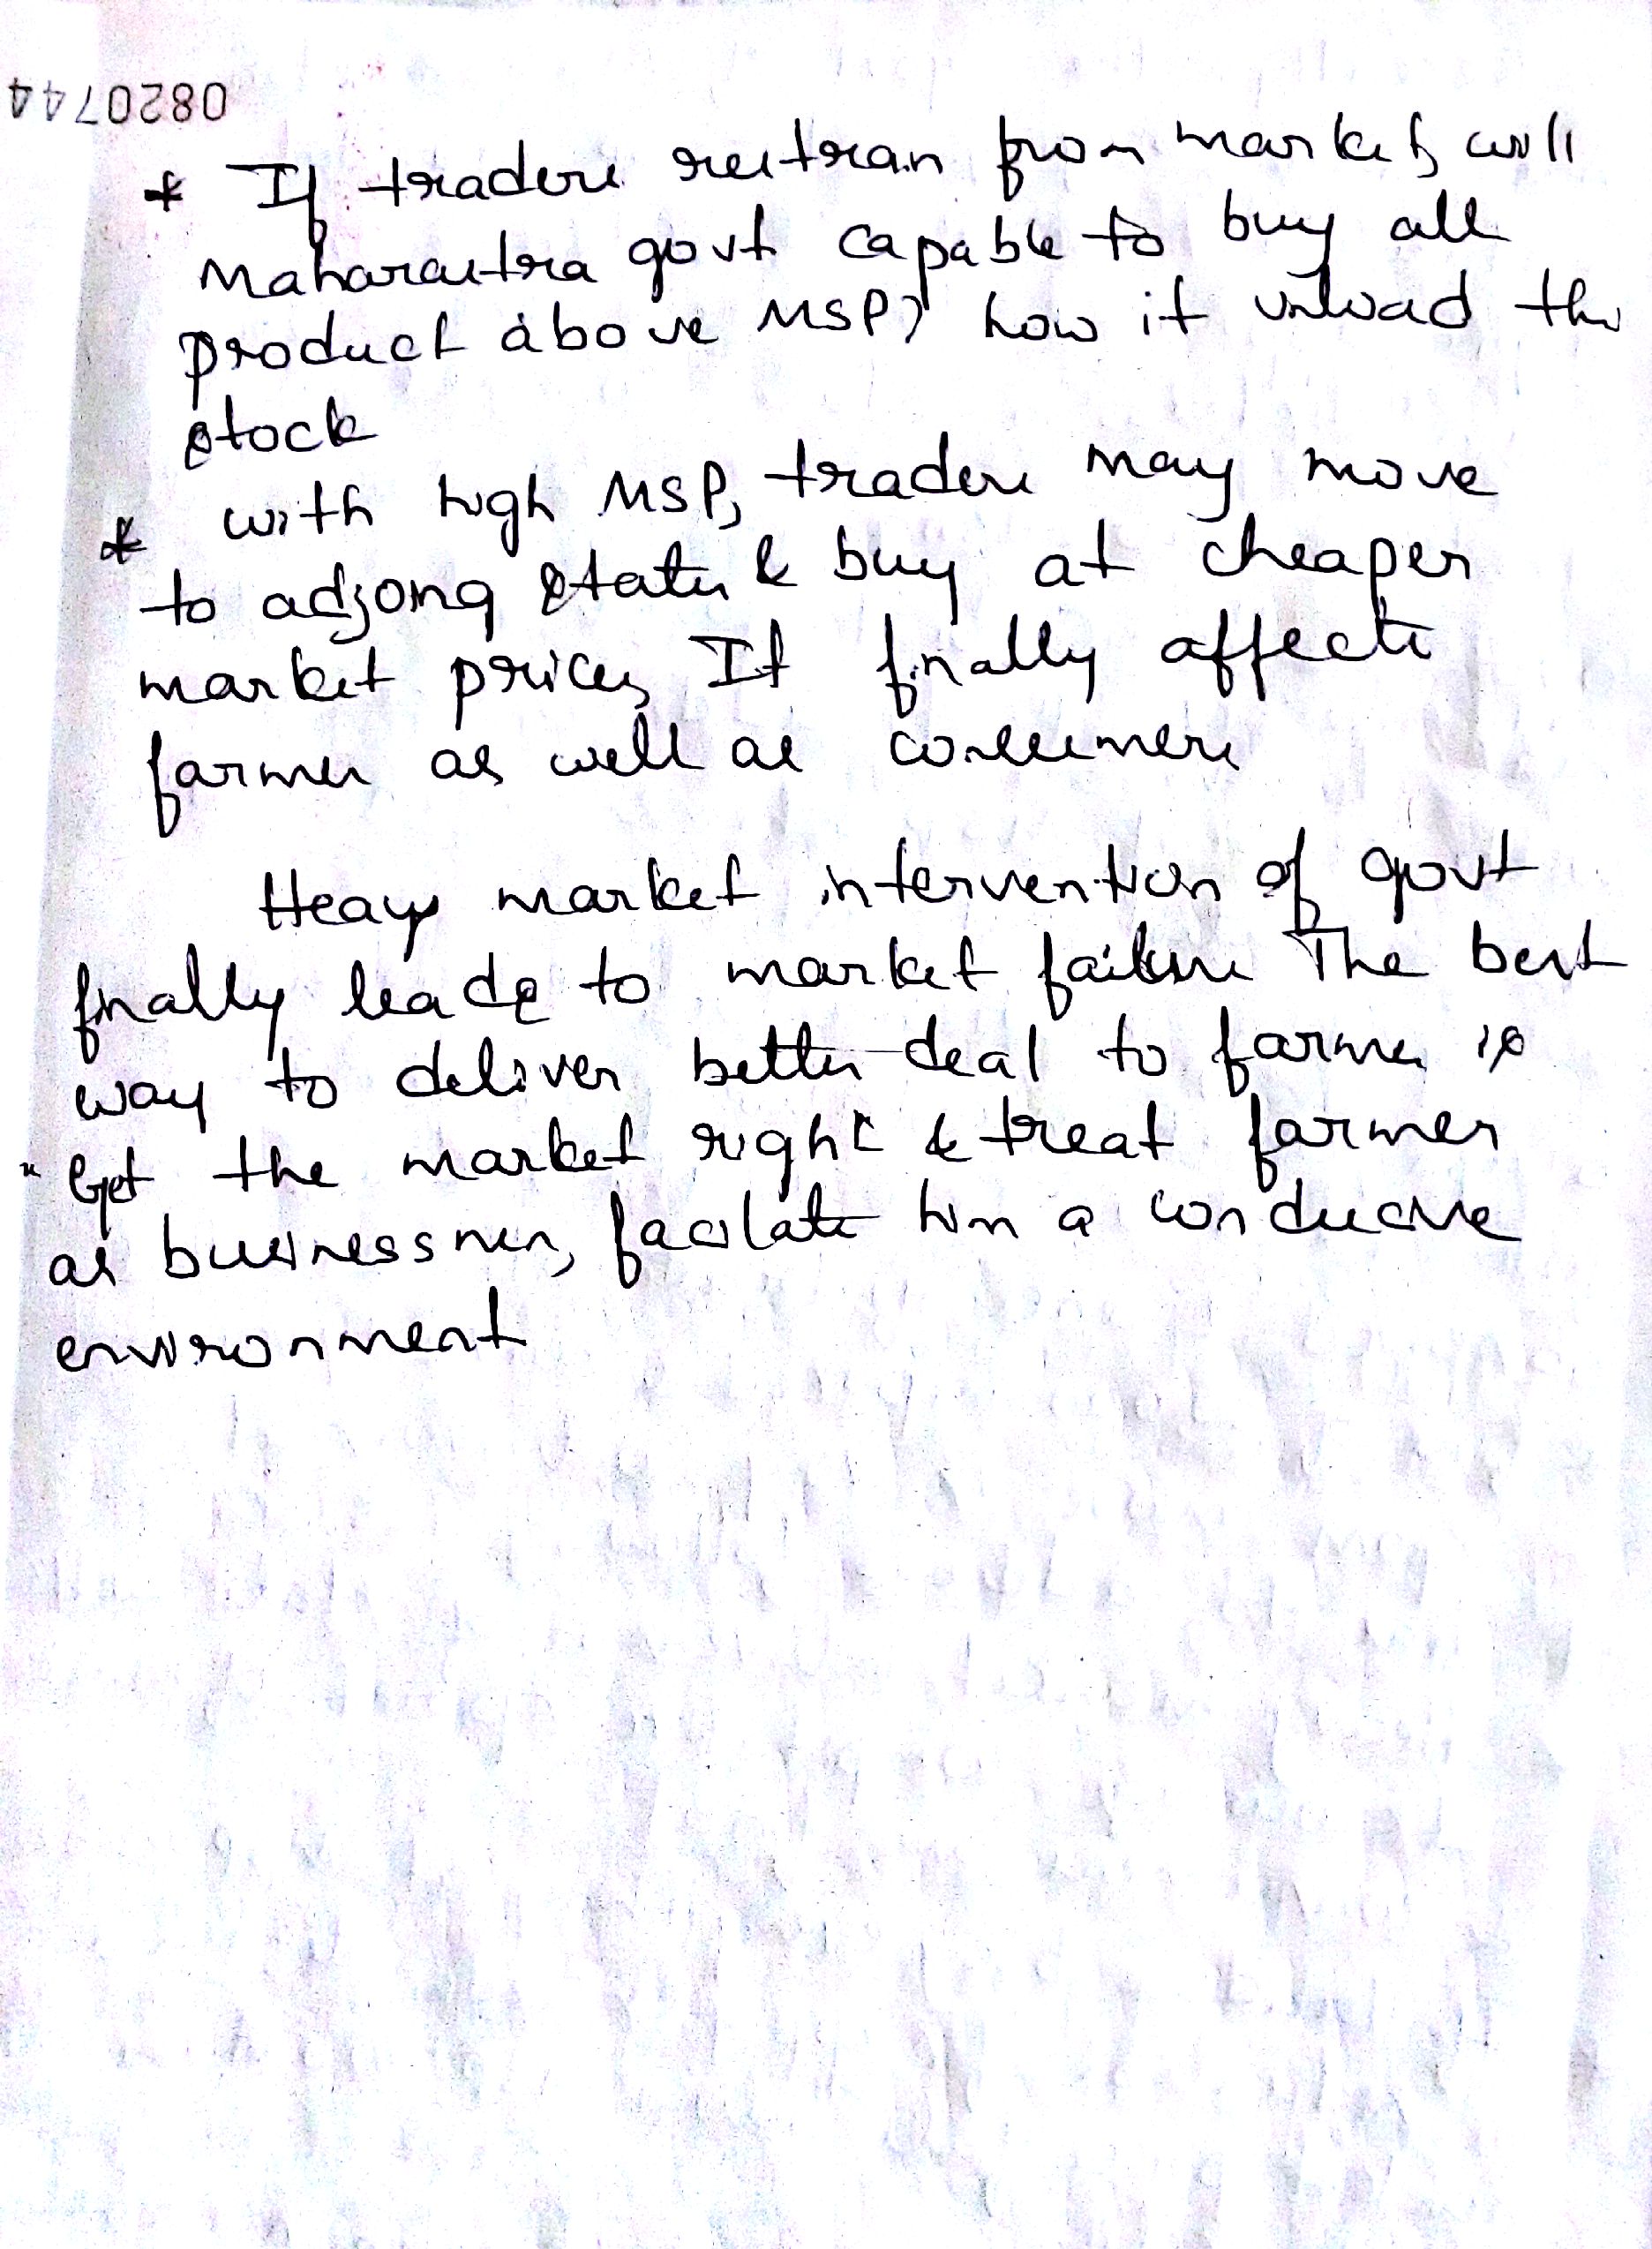 0820744
* If traders restrain from market, will
Maharastra govt capable to buy all
product above MSP? how it unload this
stock
* with high MSP, traders may move
to adjoing states & buy at cheaper
market prices, It finally affects
farmer as well as consumers
Heavy market intervention of govt
finally leads to market failure The best
way to deliver better deal to farmer is
" Get the market right & treat farmer
as businessmen, facilate him a conducive
environment